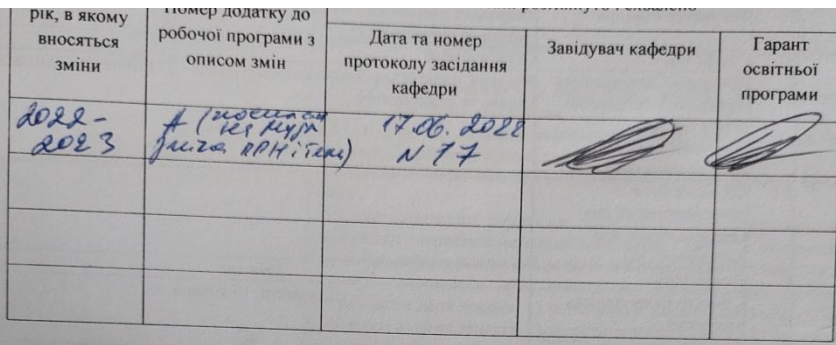 рік, в якому
вносяться
зміни
Номер додатку до
робочої програми з
описом змін
розглянуто і схвалено
Дата та номер
протоколу засідання
кафедри
Завідувач кафедри
Гарант
освітньої
програми
2022-
2023
А (
17.06.2022
N 17